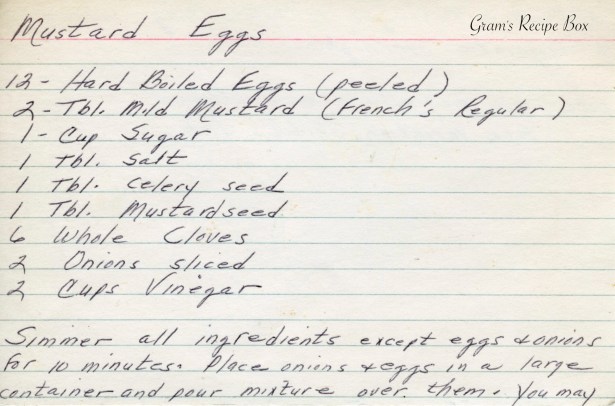 Mustard Eggs
Gram's Recipe Box
12 - Hard Boiled Eggs (peeled)
2 - Tbl. Mild Mustard (French's Regular)
1 - Cup Sugar
1 Tbl. Salt
1 Tbl. celery seed
1 Tbl. Mustardseed
6 Whole Cloves
2 Onions sliced
2 Cups Vinegar
Simmer all ingredients except eggs & onions
for 10 minutes. Place onions & eggs in a large
container and pour mixture over them. You may